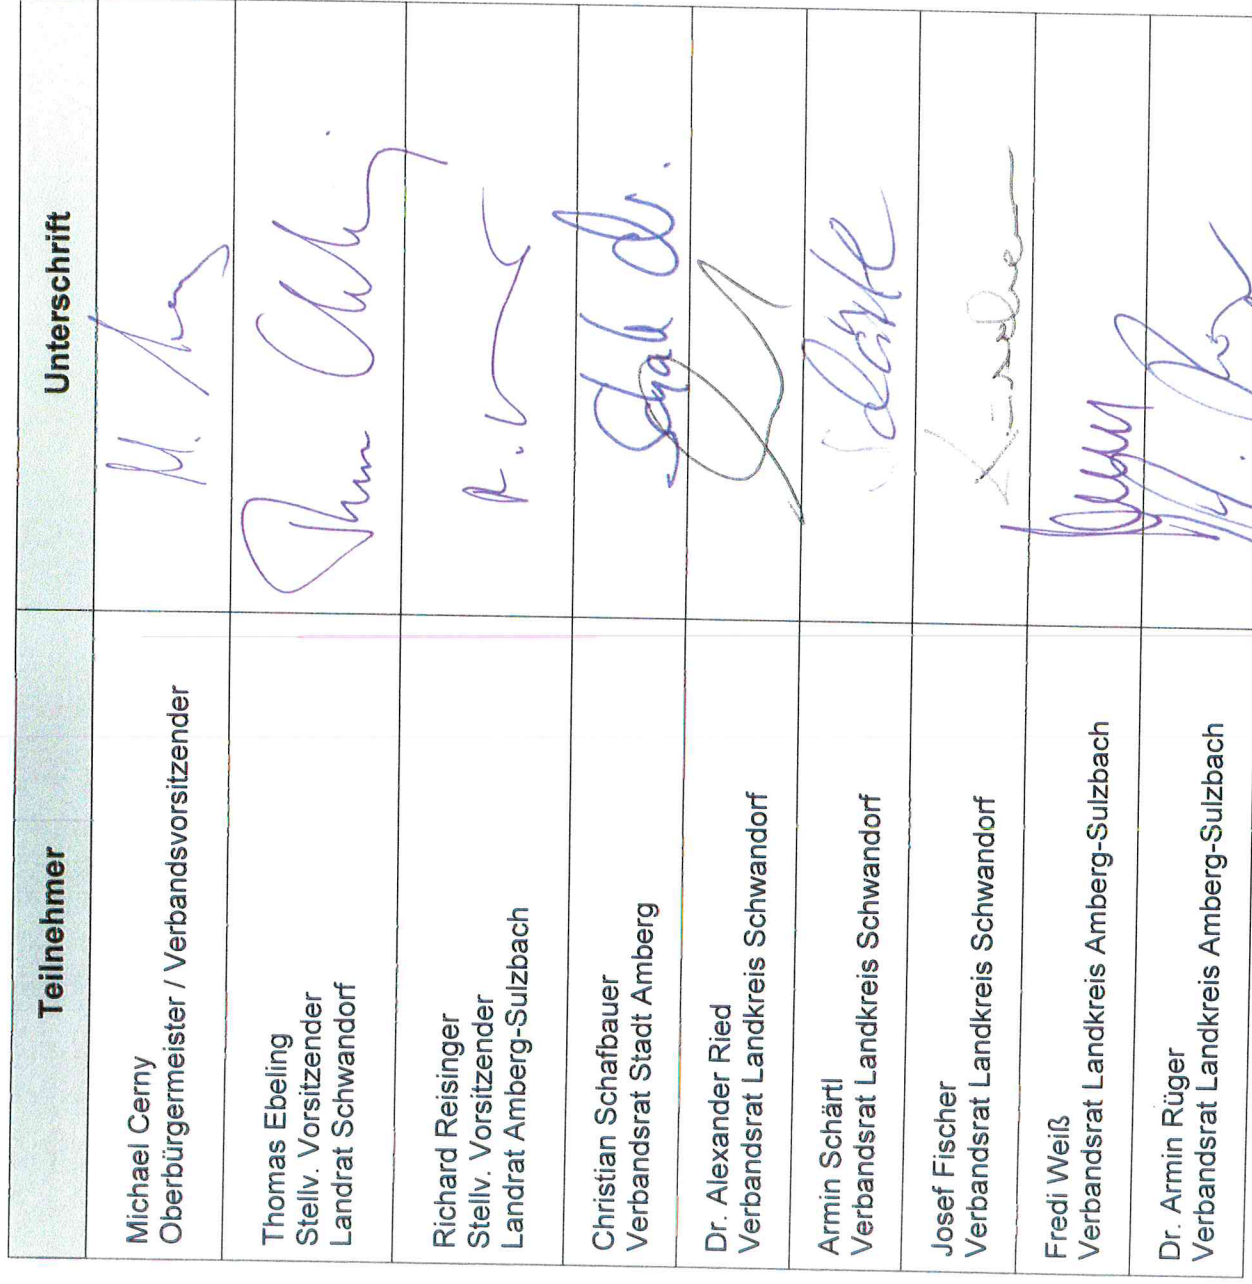 Teilnehmer
Unterschrift
Michael Cerny
Oberbürgermeister / Verbandsvorsitzender
Thomas Ebeling
Stellv. Vorsitzender
Landrat Schwandorf
Richard Reisinger
Stellv. Vorsitzender
Landrat Amberg-Sulzbach
Christian Schafbauer
Verbandsrat Stadt Amberg
Dr. Alexander Ried
Verbandsrat Landkreis Schwandorf
Armin Schärtl
Verbandsrat Landkreis Schwandorf
Josef Fischer
Verbandsrat Landkreis Schwandorf
Fredi Weiß
Verbandsrat Landkreis Amberg-Sulzbach
Dr. Armin Rüger
Verbandsrat Landkreis Amberg-Sulzbach